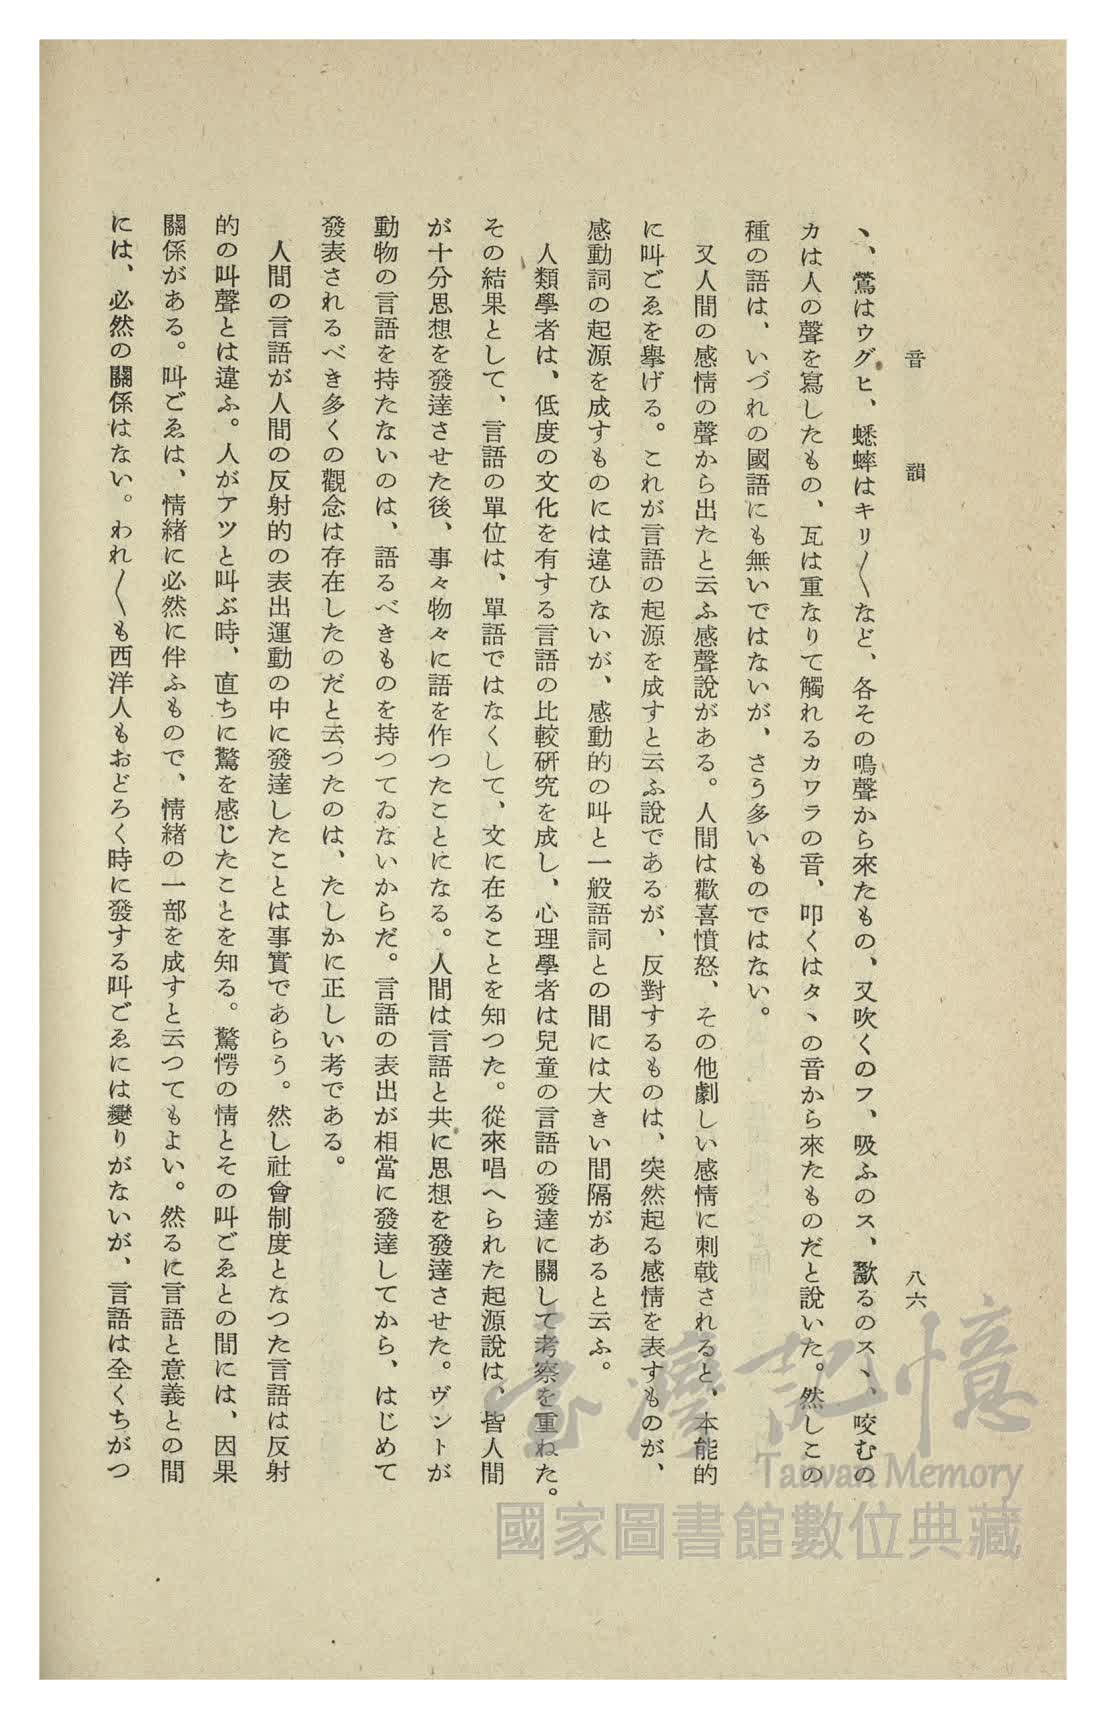 音韻
八六
丶、鶯はウグヒ、蟋蟀はキリ〳〵など、各その鳴聲から來たもの、又吹くのフ、吸ふのス、歠るのスヽ、咬むの
カは人の聲を寫したもの、瓦は重なりて觸れるカワラの音、叩くはタヽの音から來たものだと說いた。然しこの
種の語は、いづれの國語にも無いではないが、さう多いものではない。
又人間の感情の聲から出たと云ふ感聲說がある。人間は歡喜憤怒、その他劇しい感情に刺戟されると、本能的
に叫ごゑを擧げる。これが言語の起源を成すと云ふ說であるが、反對するものは、突然起る感情を表すものが、
感動詞の起源を成すものには違ひないが、感動的の叫と一般語詞との間には大きい間隔があると云ふ。
人類學者は、低度の文化を有する言語の比較研究を成し、心理學者は兒童の言語の發達に關して考察を重ねた。
その結果として、言語の單位は、單語ではなくして、文に在ることを知つた。從來唱へられた起源說は、皆人間
が十分思想を發達させた後、事々物々に語を作つたことになる。人間は言語と共に思想を發達させた。ヴントが
動物の言語を持たないのは、語るべきものを持つてゐないからだ。言語の表出が相當に發達してから、はじめて
發表されるべき多くの觀念は存在したのだと云つたのは、たしかに正しい考である。
人間の言語が人間の反射的の表出運動の中に發達したことは事實であらう。然し社會制度となつた言語は反射
的の叫聲とは違ふ。人がアツと叫ぶ時、直ちに驚を感じたことを知る。驚愕の情とその叫ごゑとの間には、因果
關係がある。叫ごゑは、情緒に必然に伴ふもので、情緒の一部を成すと云つてもよい。然るに言語と意義との間
には、必然の關係はない。われ〳〵も西洋人もおどろく時に發する叫ごゑには變りがないが、言語は全くちがつ
臺灣記憶
Taiwan Memory
國家圖書館數位典藏